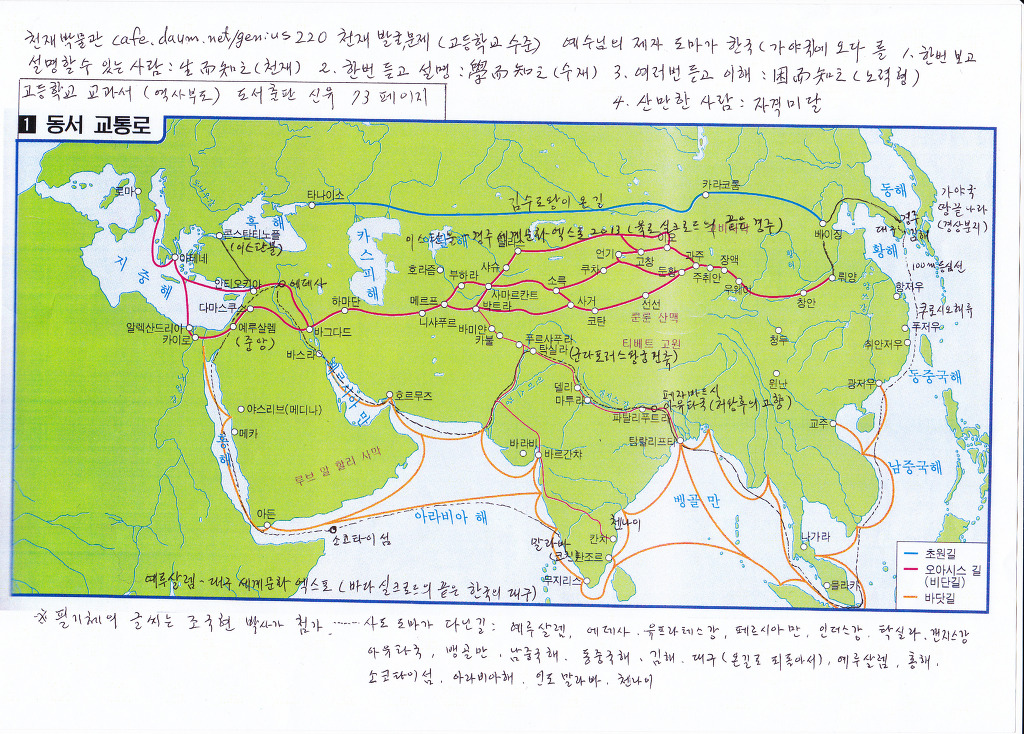 천재박물관 cafe.daum.net/genius220 천재 발굴문제 (고등학교 수준) 예수님의 제자 도마가 한국(가야국)에 오다 를 1. 한번 보고
설명할 수 있는 사람 : 生而知之(천재) 2. 한번 듣고 설명 : 學而知之(수재) 3. 여러번 듣고 이해 : 困而知之(노력형)
고등학교 교과서 (역사부도) 도서출판 신유 73 페이지
4. 산만한 사람 : 자격미달
1 동서 교통로
로마
타나이스
김수로왕이 온 길
카라코룸
동해
가야국
땅끝나라
(경상북지)
흑해
콘스탄티노플
(이스탄불)
카스피해
경주 세계문화 엑스포 2013
끝은 경주)
베이징
경주
대구
김해
황해
지중해
아테네
안티오키아
에데사
호라즘
부하라
사슈
사마르칸트
연기
쿠차
고창
둔황
과주
주취안
장액
우웨이
뤄양
창안
100m등심선
항저우
쿠로시오해류
다마스쿠스
하마단
메르프
박트라
소륵
사거
호탄
선선
쿤룬 산맥
알렉산드리아
카이로
예루살렘
(중앙)
바그다드
니샤푸르
바미얀
카불
푸르샤푸라
탁실라
(군다포러스왕궁건축)
티베트 고원
청두
푸저우
취안저우
바스라
페르시아 만
호르무즈
델리
마투라
아유타국(허왕후의 고향)
파탈리푸트라
윈난
광저우
동중국해
야스리브(메디나)
메카
홍해
루브 알 할리 사막
바라비
바르간차
탐랄리프티
교주
남중국해
아든
소코타이 섬
아라비아 해
벵골 만
첸나이
칸치
말라바
(코친)
촐조르
무지리스
나가라
믈라카
초원길
오아시스 길
(비단길)
바닷길
예루살렘 - 대구 세계문화 엑스포 (바다 실크로드의 끝은 한국의 대구)
※ 필기체의 글씨는 조국현 박사가 첨가 ······ 사도 도마가 다닌길 : 예루살렘, 에데사, 유프라테스강, 페르시아만, 인더스강, 탁실라, 갠지스강
아유타국, 벵골만, 남중국해, 동중국해, 김해, 대구(온길로 되돌아서), 예루살렘, 홍해,
소코타이섬, 아라비아해, 인도 말라바, 첸나이